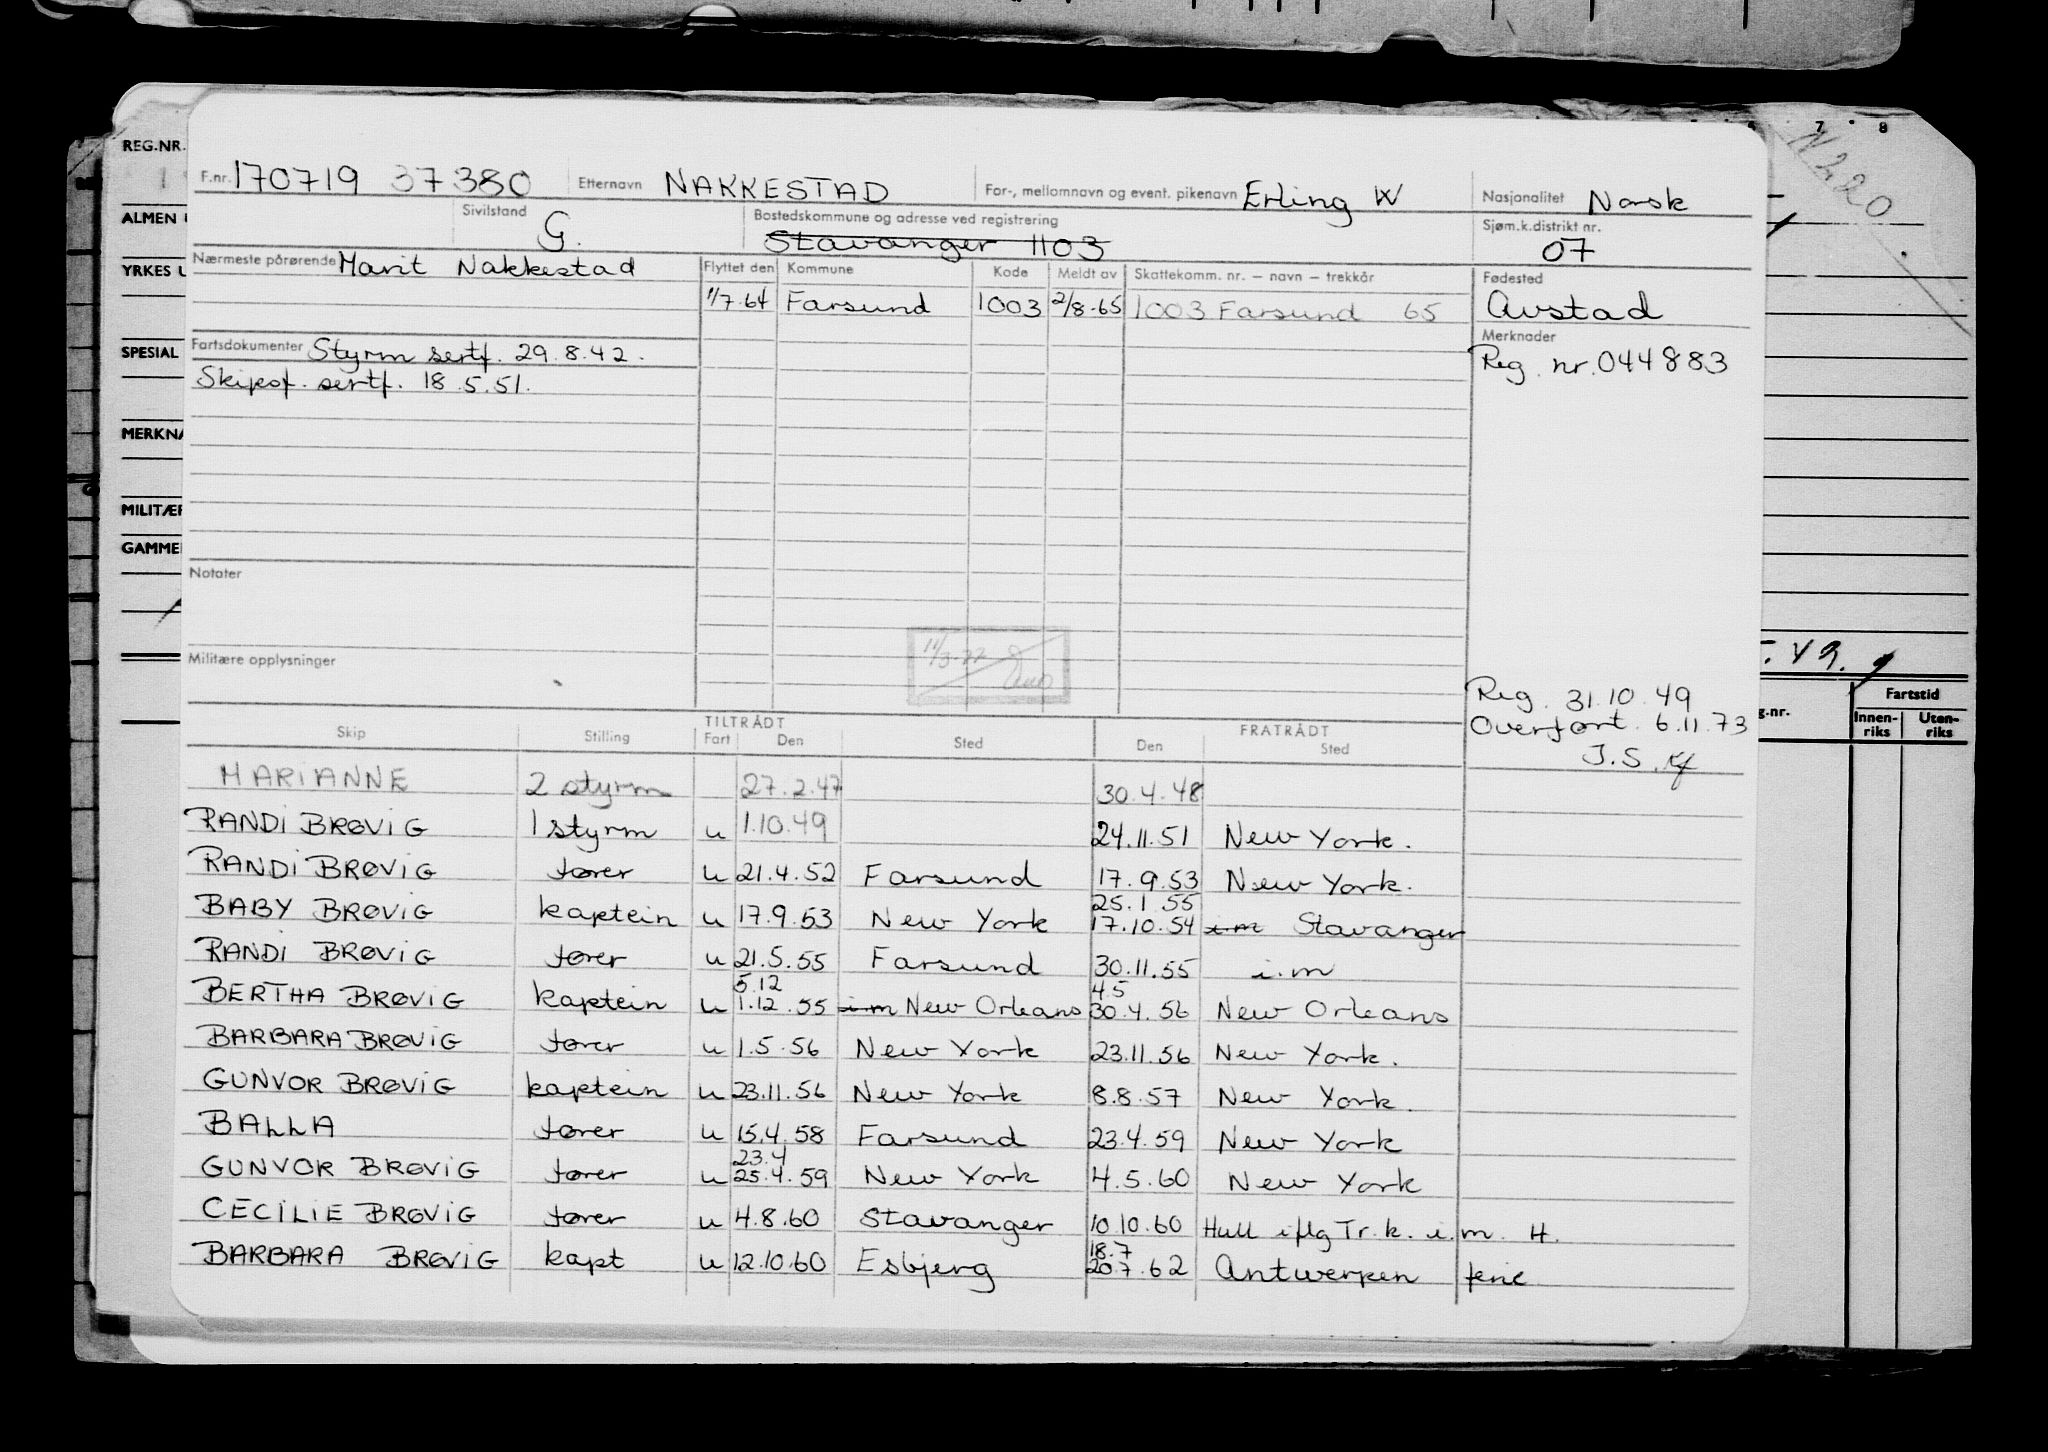 7 8
REG.NR.
N220
F.nr. 170719 37380 Etternavn NAKKESTAD For-, mellomnavn og event. pikenavn Erling W Nasjonalitet Norsk
ALMEN
Sivilstand G. Bostedskommune og adresse ved registrering Stavanger 1103 Sjøm.k.distrikt nr. 07
YRKES
Nærmeste pårørende Marit Nakkestad Flyttet den Kommune Kode Meldt av Skattekomm. nr. – navn – trekkår Fødested
1/7.64 Farsund 1003 2/8.65 1003 Farsund 65 Austad
SPESIAL
Fartsdokumenter Styrm sertf. 29.8.42. Merknader
Skipsf. sertf. 18.5.51. Reg. nr. 044883
MERKNA
MILITÆR
GAMMEL
Notater
Militære opplysninger
11/3-77
Reg. 31.10.49
Overført. 6.11.73
J.S.
Fartstid
g.nr. Innen-riks Uten-riks
Skip Stilling TILTRÅDT Fart Den Sted FRATRÅDT Den Sted
MARIANNE 2 styrm 27.2.47 30.4.48
RANDI BRØVIG 1 styrm u 1.10.49 24.11.51 New York.
RANDI BRØVIG fører u 21.4.52 Farsund 17.9.53 New York.
25.1.55
BABY BRØVIG kaptein u 17.9.53 New York 17.10.54 i.m Stavanger
RANDI BRØVIG fører u 21.5.55 Farsund 30.11.55 i.m
5.12 4.5
BERTHA BRØVIG kaptein u 1.12.55 i.m New Orleans 30.4.56 New Orleans
BARBARA BRØVIG fører u 1.5.56 New York 23.11.56 New York.
GUNVOR BRØVIG kaptein u 23.11.56 New York 8.8.57 New York.
BALLA fører u 15.4.58 Farsund 23.4.59 New York
23.4
GUNVOR BRØVIG fører u 25.4.59 New York 4.5.60 New York
CECILIE BRØVIG fører u 4.8.60 Stavanger 10.10.60 Hull iflg Tr.k. i.m. H.
18.7
BARBARA BRØVIG kapt u 12.10.60 Esbjerg 20.7.62 Antwerpen ferie